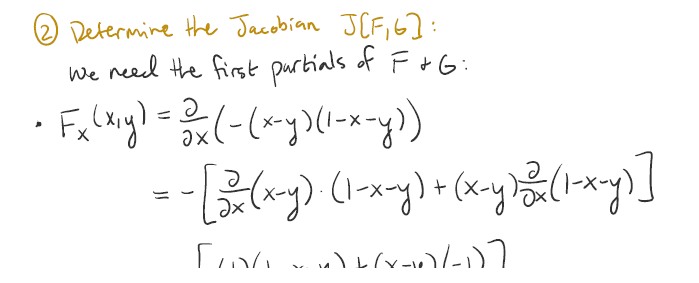 ② Determine the Jacobian J[F,G]:
We need the first partials of F + G:
• Fₓ(x,y) = ∂/∂x (-(x-y)(1-x-y))
= -[∂/∂x (x-y) · (1-x-y) + (x-y) ∂/∂x (1-x-y)]